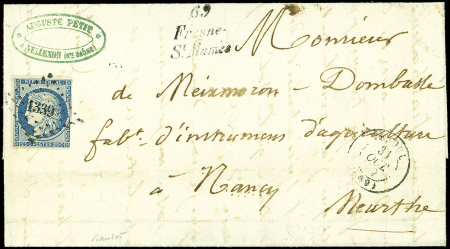 AUGUSTE PETIT
A VELLEXON (Hte Saône)
69
Fresne-
St Mamès
1339
Monsieur
de Meixmoron-Dombasle
fabt. d'instrumens d'agriculture
à Nancy
Meurthe
31
OCT.
(69)